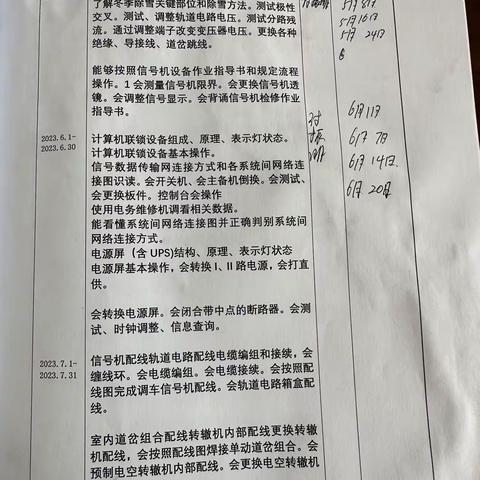 了解冬季除雪关键部位和除雪方法。测试极性
交叉。测试、调整轨道电路电压。测试分路残
流。通过调整端子改变变压器电压。更换各种
绝缘、导接线、道岔跳线。
5月8日
5月16日
5月24日
能够按照信号机设备作业指导书和规定流程
操作。1 会测量信号机限界。会更换信号机透
镜。会调整信号显示。会背诵信号机检修作业
指导书。
2023.6.1-
2023.6.30
计算机联锁设备组成、原理、表示灯状态。
计算机联锁设备基本操作。
信号数据传输网连接方式和各系统间网络连
接图识读。会开关机、会主备机倒换。会测试、
会更换板件。控制台会操作
使用电务维修机调看相关数据。
能看懂系统间网络连接图并正确判别系统间
网络连接方式。
电源屏（含 UPS)结构、原理、表示灯状态
电源屏基本操作，会转换 I、II 路电源，会打直
供。
6月1日
6月7日
6月14日
6月20日
会转换电源屏。会闭合带中点的断路器。会测
试、时钟调整、信息查询。
2023.7.1-
2023.7.31
信号机配线轨道电路配线电缆编组和接续，会
缠线环。会电缆编组。会电缆接续。会按照配
线图完成调车信号机配线。会轨道电路箱盒配
线。
室内道岔组合配线转辙机内部配线更换转辙
机配线，会按照配线图焊接单动道岔组合。会
预制电空转辙机内部配线。会更换电空转辙机